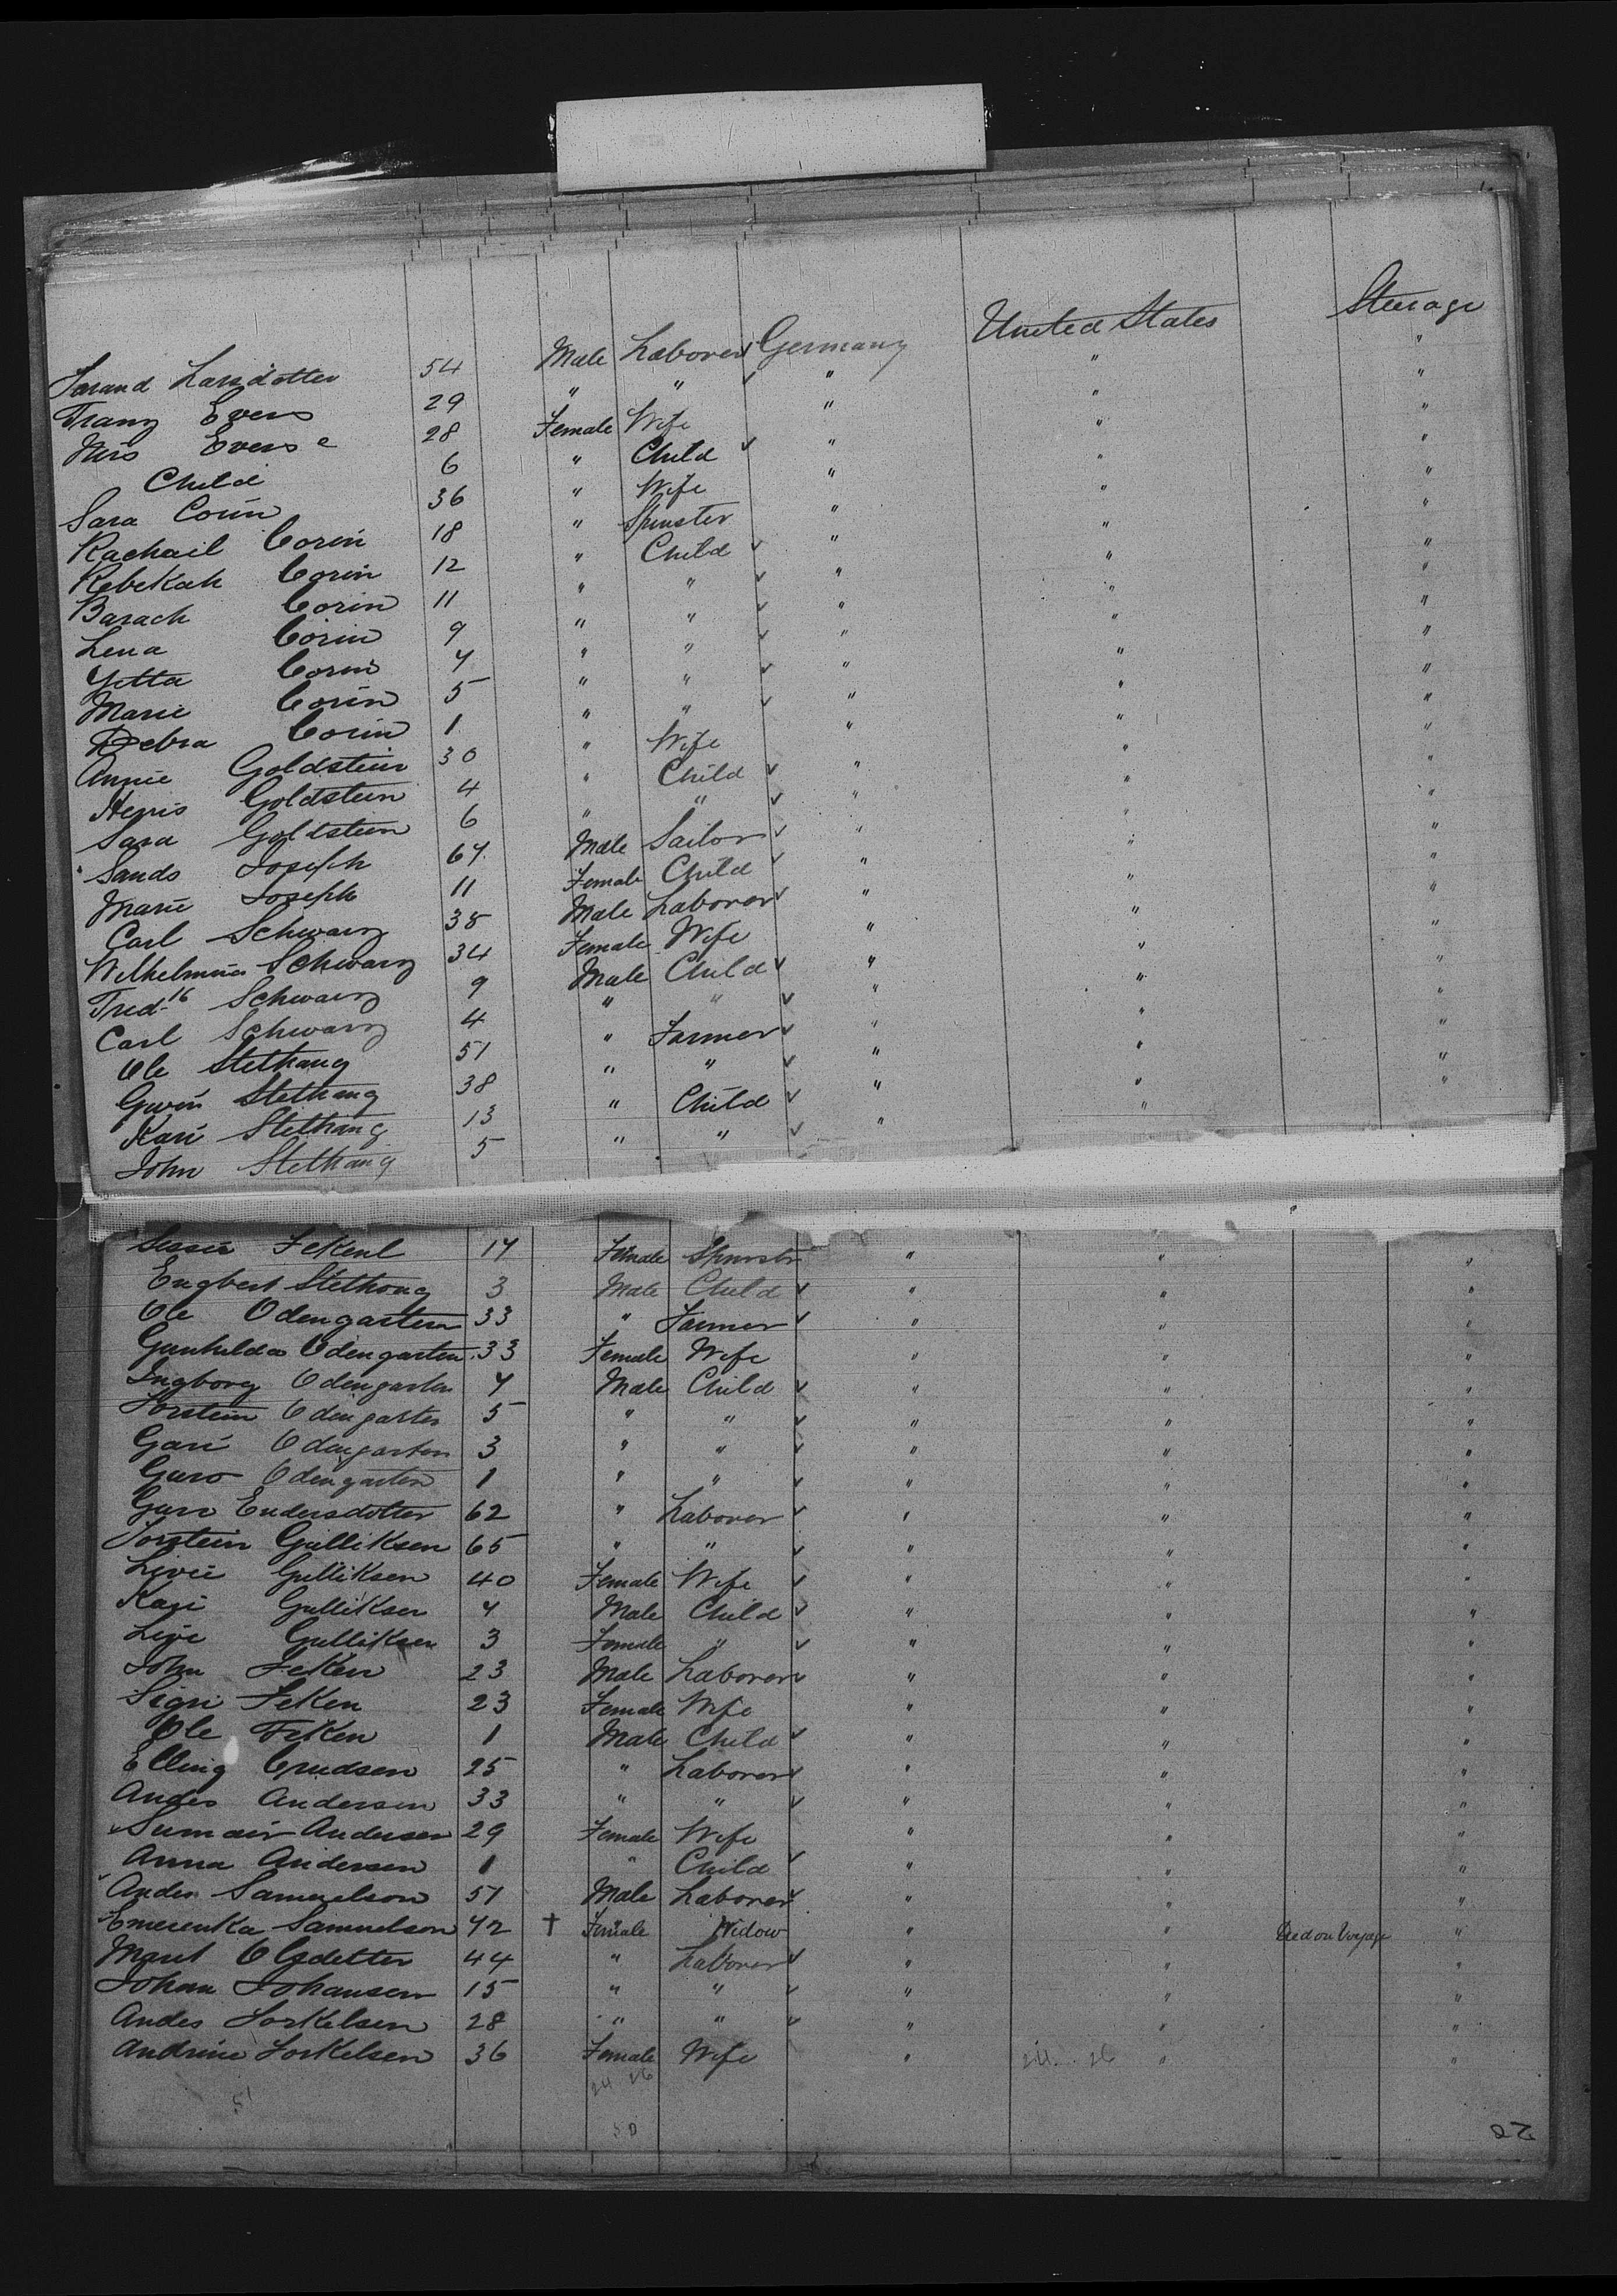 Tarand Larsdotter 54 Male Laborer Germany United States Steerage
Franz Evers 29 " " " " "
Mrs Evers 28 Female Wife " " "
Child 6 " Child " " "
Sara Corin 36 " Wife " " "
Rachail Corin 18 " Spinster " " "
Rebekah Corin 12 " Child " " "
Barach Corin 11 " " " " "
Lena Corin 9 " " " " "
Yetta Corin 7 " " " " "
Marie Corin 5 " " " " "
Debra Corin 1 " " " " "
Annie Goldstein 30 " Wife " " "
Henis Goldstein 4 " Child " " "
Sara Goldstein 6 " " " " "
Sands Joseph 67 Male Sailor " " "
Marie Joseph 11 Female Child " " "
Carl Schwarz 38 Male Laborer " " "
Wilhelmina Schwarz 34 Female Wife " " "
Fred. Schwarz 9 Male Child " " "
Carl Schwarz 4 " " " " "
Ole Stethang 51 " Farmer " " "
Gwin Stethang 38 " " " " "
Kari Stethang 13 " Child " " "
John Stethang 5 " " " " "
Sessie Fekenl 17 Female Spinstr " " "
Engbert Stethong 3 Male Child " " "
Ole Odengarten 33 " Farmer " " "
Gunhilda Odengarten 33 Female Wife " " "
Ingborg Odengarten 7 Male Child " " "
Torstein Odengarten 5 " " " " "
Gari Odengarten 3 " " " " "
Guro Odengarten 1 " " " " "
Guro Endersdotter 62 " Laborer " " "
Torstein Gulliksen 65 " " " " "
Livie Gulliksen 40 Female Wife " " "
Kari Gulliksen 7 Male Child " " "
Live Gulliksen 3 Female " " " "
John Feken 23 Male Laborer " " "
Sigri Feken 23 Female Wife " " "
Ole Feken 1 Male Child " " "
Elling Cnudsen 25 " Laborer " " "
Andes Andersen 33 " " " " "
Sumair Andersen 29 Female Wife " " "
Anna Andersen 1 " Child " " "
Anders Samuelson 51 Male Laborer " " "
Emerenka Samuelson 42 † Female Widow " " Died on Voyage "
Maret Olsdetter 44 " Laborer " " "
Johan Johansen 15 " " " " "
Andes Torkelsen 28 " " " " "
Andrine Torkelsen 36 Female Wife " " "
24 26 24 26
51 50